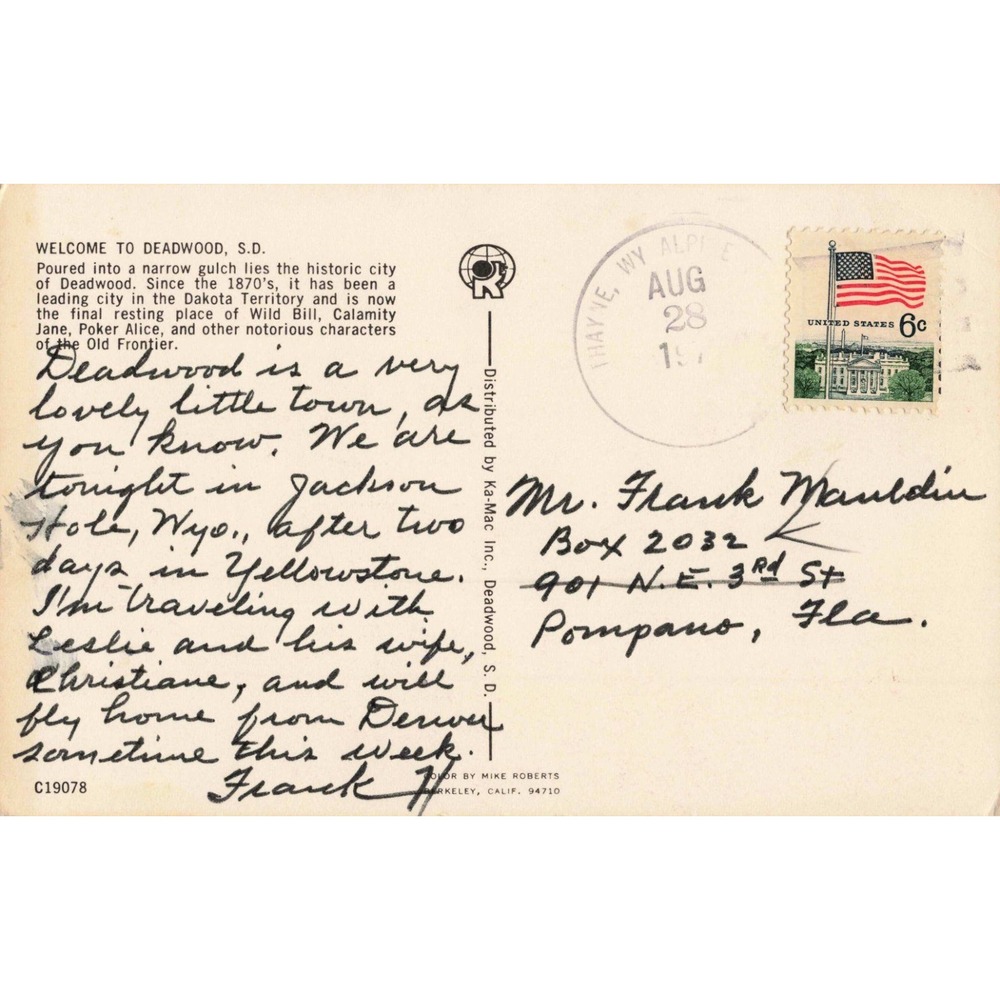 WELCOME TO DEADWOOD, S.D.
Poured into a narrow gulch lies the historic city
of Deadwood. Since the 1870's, it has been a
leading city in the Dakota Territory and is now
the final resting place of Wild Bill, Calamity
Jane, Poker Alice, and other notorious characters
of the Old Frontier.
Deadwood is a very
lovely little town, as
you know. We are
tonight in Jackson
Hole, Wyo., after two
days in Yellowstone.
I'm traveling with
Leslie and his wife,
Christiane, and will
fly home from Denver
sometime this week.
Frank H
C19078
COLOR BY MIKE ROBERTS
BERKELEY, CALIF. 94710
Distributed by Ka-Mac Inc., Deadwood, S. D.
THAYNE, WY ALPINE
AUG
28
197
UNITED STATES 6c
Mr. Frank Mauldin
Box 2032
901 N.E. 3rd St
Pompano, Fla.